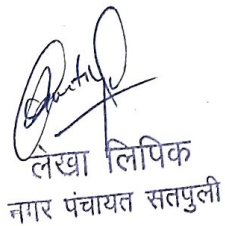 लेखा लिपिक
नगर पंचायत सतपुली